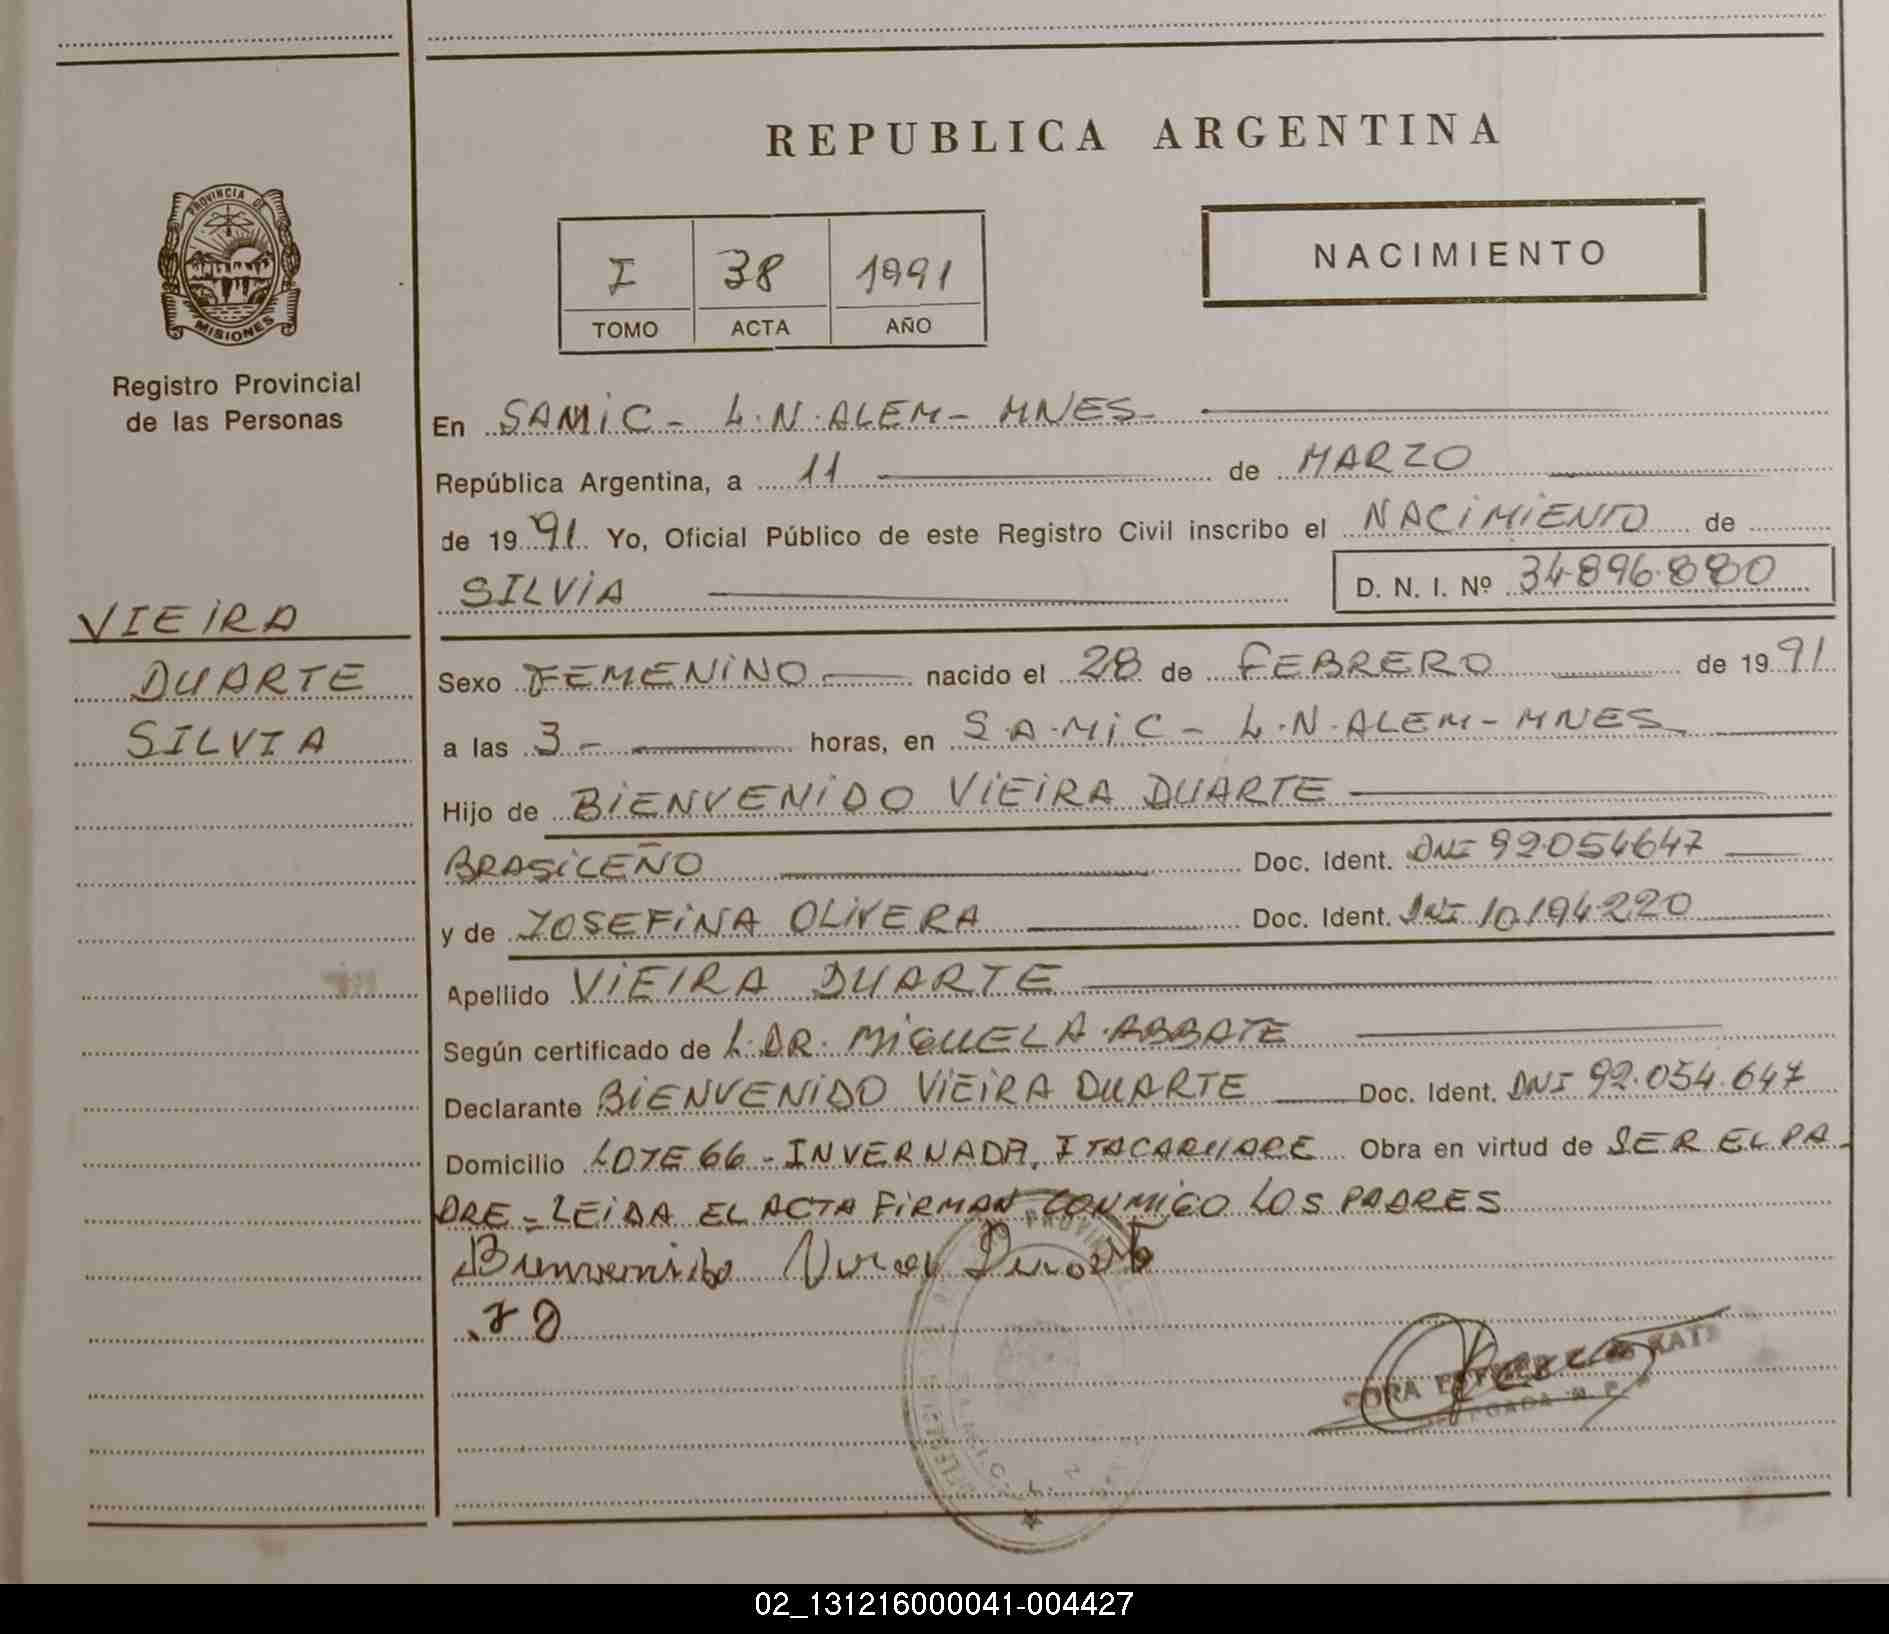 REPUBLICA ARGENTINA
PROVINCIA DE
MISIONES
Registro Provincial
de las Personas
VIEIRA
DUARTE
SILVIA
I 38 1991
TOMO ACTA AÑO
NACIMIENTO
En SAMIC - L.N.ALEM - MNES-
República Argentina, a 11 de MARZO
de 1991 Yo, Oficial Público de este Registro Civil inscribo el NACIMIENTO de
SILVIA D. N. I. Nº 34.896.880
Sexo FEMENINO nacido el 28 de FEBRERO de 1991
a las 3 - horas, en S.A.MIC - L.N.ALEM - MNES
Hijo de BIENVENIDO VIEIRA DUARTE
BRASILEÑO Doc. Ident. DNI 92054647
y de JOSEFINA OLIVERA Doc. Ident. DNI 10.194.220
Apellido VIEIRA DUARTE
Según certificado de L.DR. MIGUEL A. ABBATE
Declarante BIENVENIDO VIEIRA DUARTE Doc. Ident. DNI 92.054.647
Domicilio LOTE 66 - INVERNADA, ITACARUARE Obra en virtud de SER EL PA-
DRE = LEIDA EL ACTA FIRMAN CONMIGO LOS PADRES
Bienvenido Duarte
J O
02_131216000041-004427